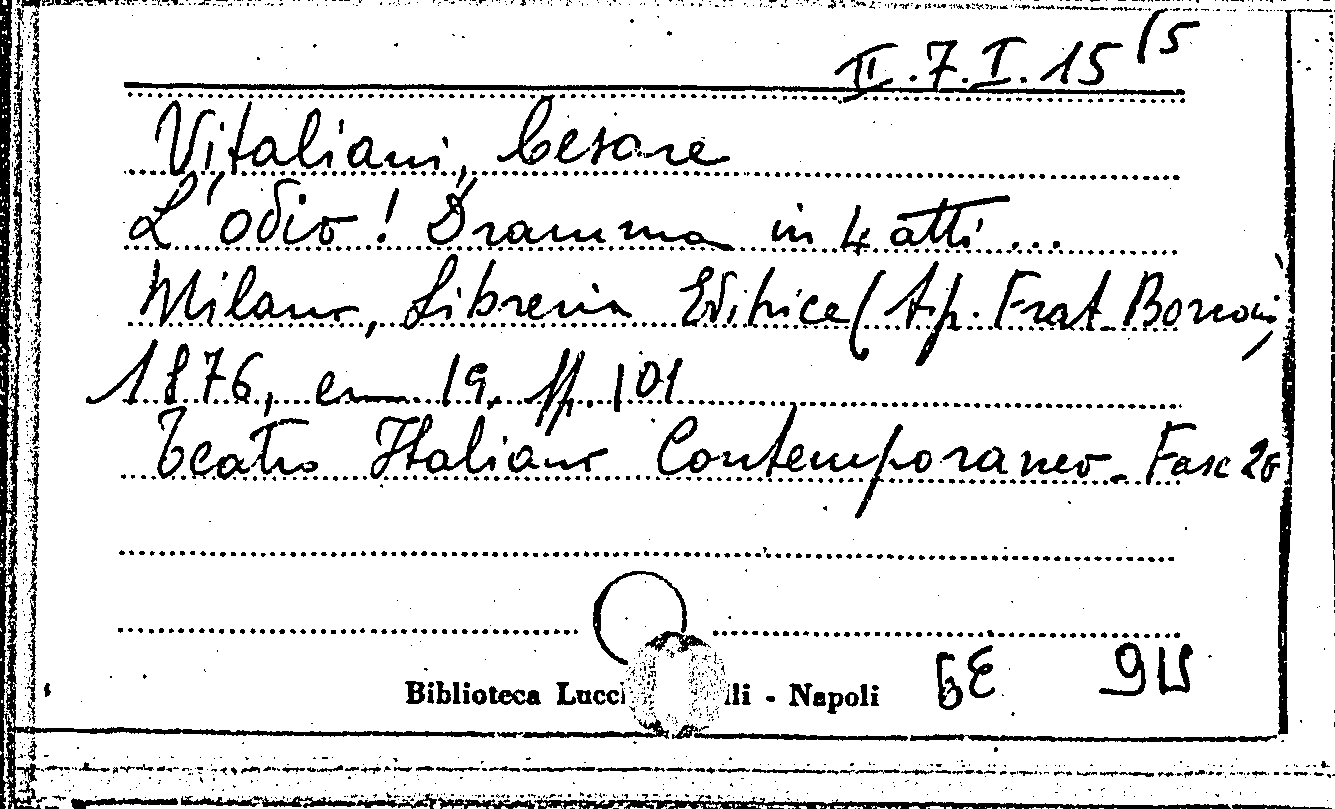 II.7.I.15 (5
Vitaliani, Cesare
L'odio! Dramma in 4 atti ...
Milano, Libreria Editrice (Tip. Frat. Borroni)
1876, cm 19, pp. 101
Teatro Italiano Contemporaneo - Fasc 26
Biblioteca Lucch lli - Napoli